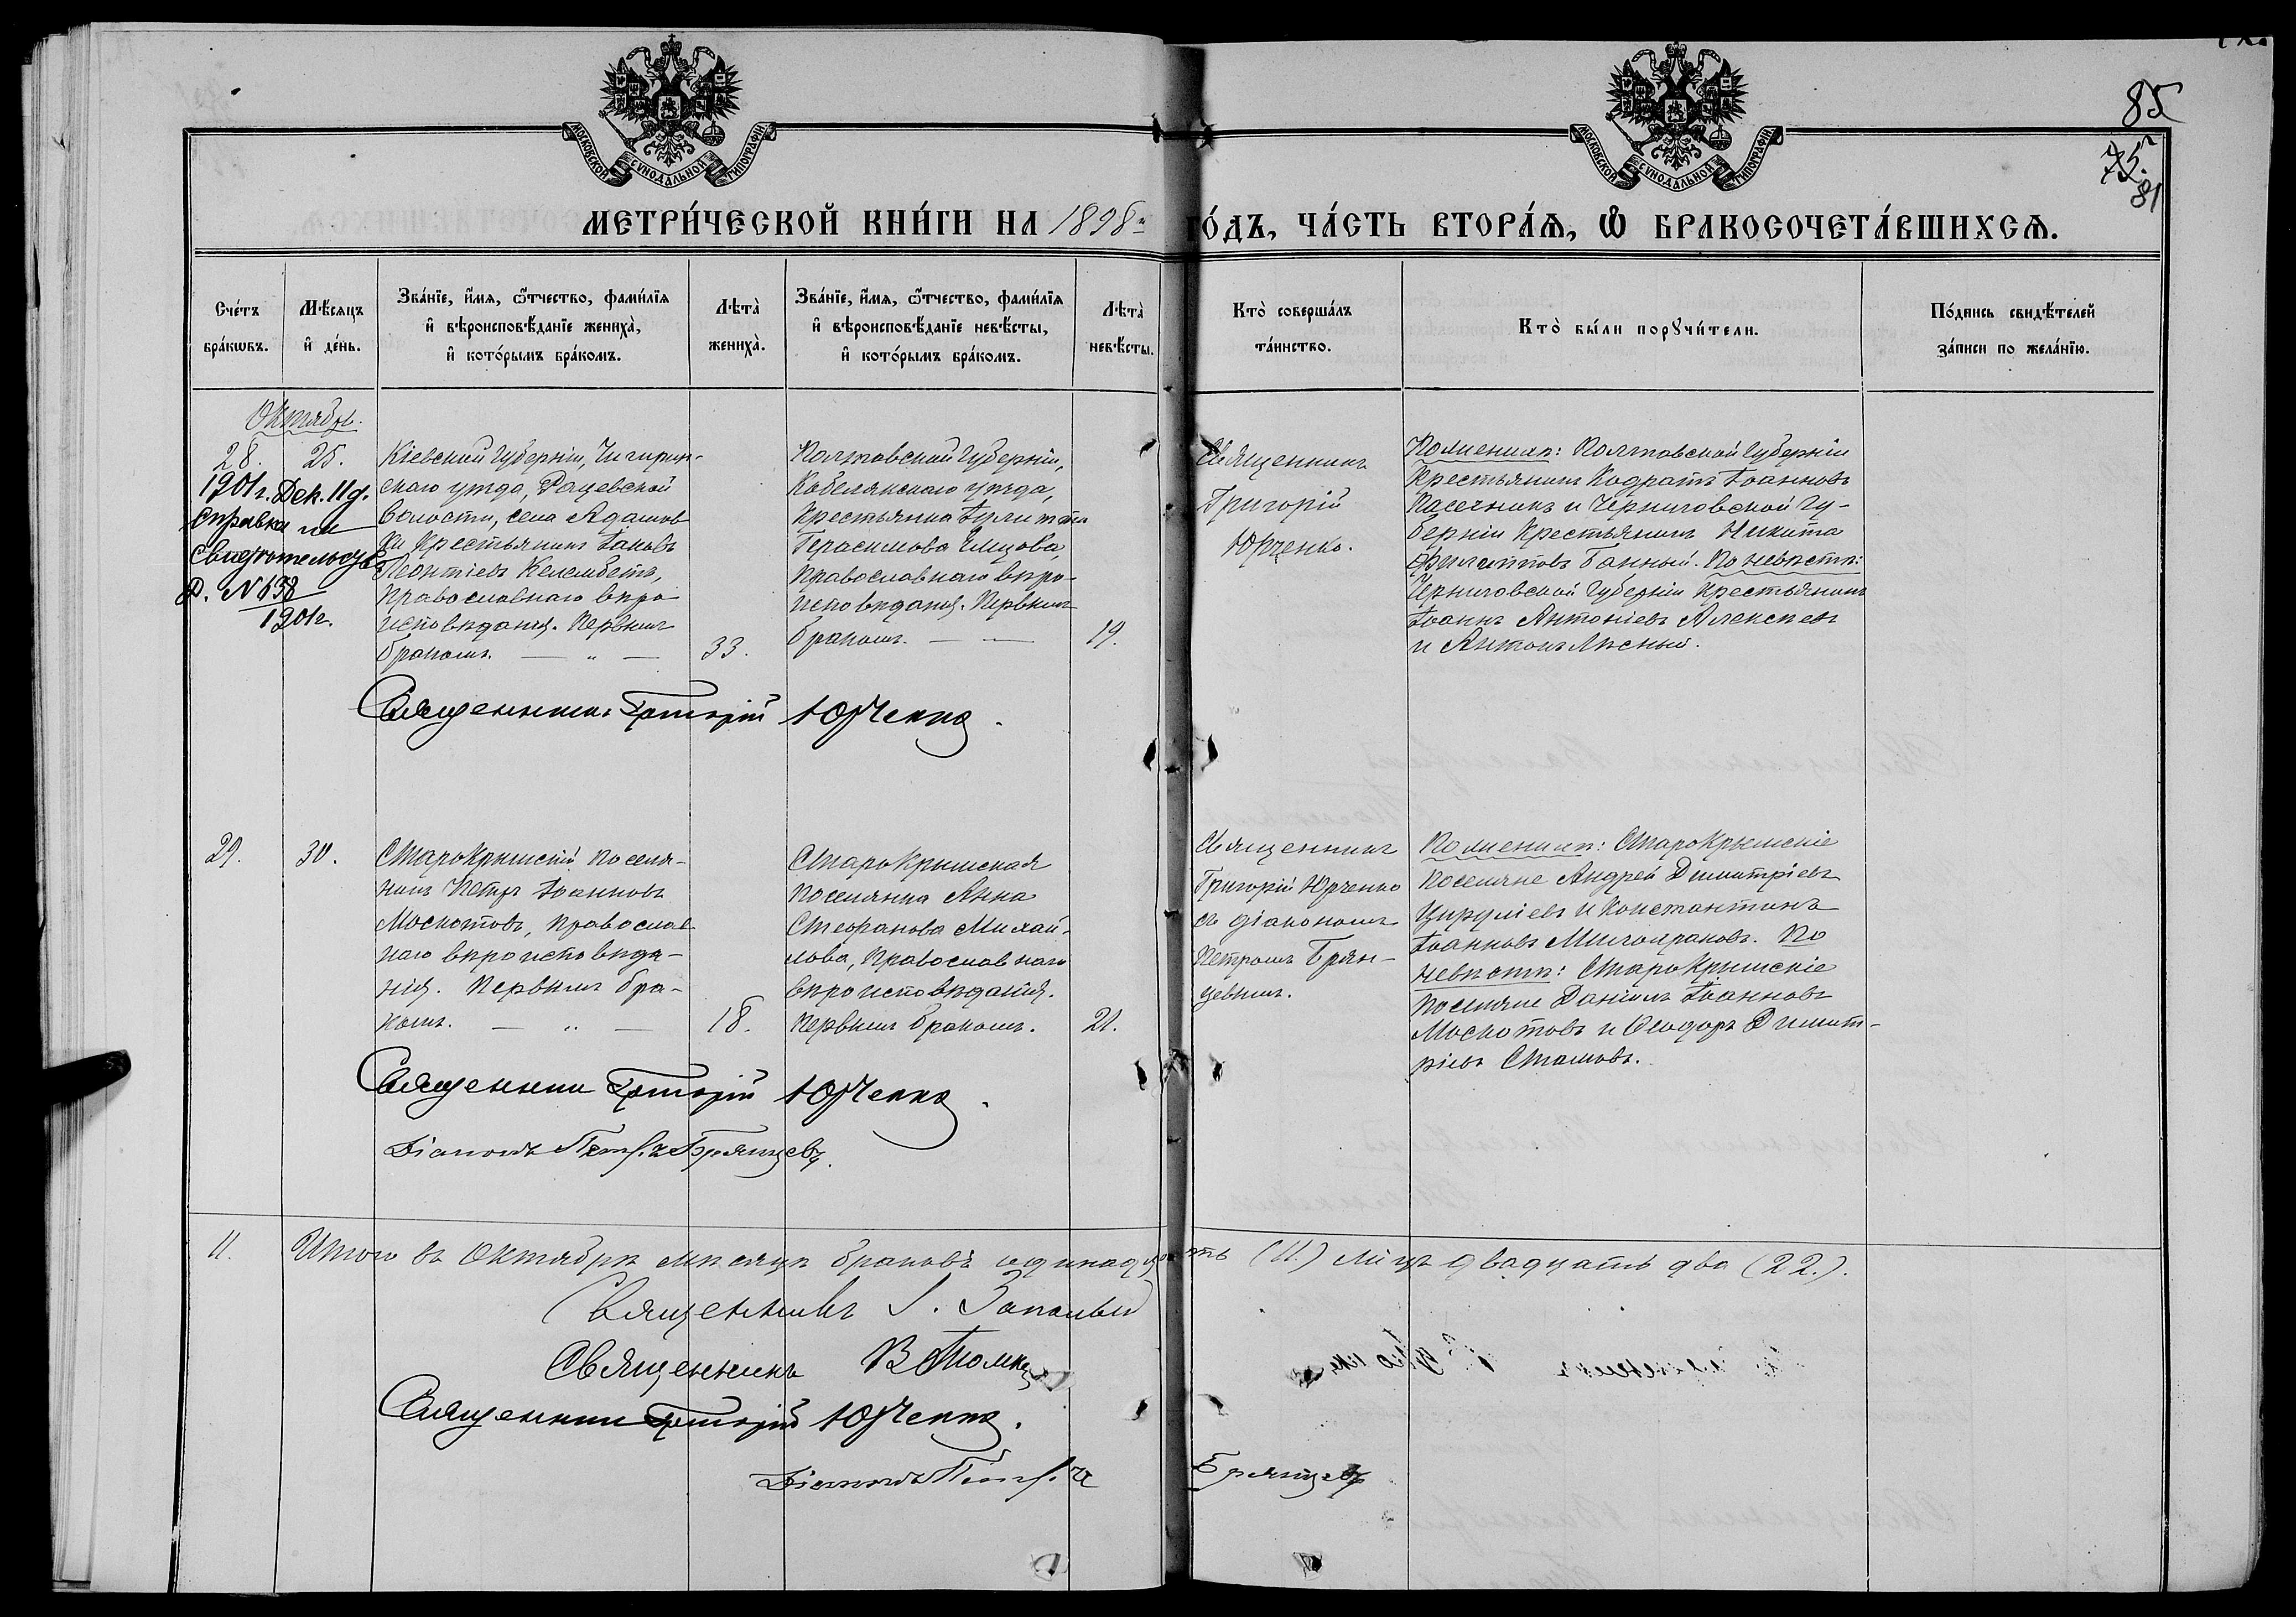 85
75.
81
МОСКОВСКОЙ СѴНОДАЛЬНОЙ ТИПОГРАФІИ
МОСКОВСКОЙ СѴНОДАЛЬНОЙ ТИПОГРАФІИ
МЕТРИ́ЧЕСКОЙ КНИ́ГИ НА 1898й ГО́ДЪ, ЧА́СТЬ ВТОРА́Ѧ, Ѡ БРАКОСОЧЕТА́ВШИХСѦ.
Сче́тъ
бра́кѡвъ.
Мѣ́сѧцъ
и҆ де́нь.
Зва́нїе, и҆́мѧ, ѻ҆́тчество, фами́лїѧ
и҆ вѣроисповѣ́данїе жениха̀,
и҆ кото́рымъ бра́комъ.
Лѣта̀
жениха̀.
Зва́нїе, и҆́мѧ, ѻ҆́тчество, фами́лїѧ
и҆ вѣроисповѣ́данїе невѣ́сты,
и҆ кото́рымъ бра́комъ.
Лѣта̀
невѣ́сты.
Кто̀ соверша́лъ
та́инство.
Кто̀ бы́ли порꙋчи́тели.
По́дпись свидѣ́телей
за́писи по жела́нїю.
Октябрь.
28. 25.
1901 г. Дек. 11 д.
Справка
№ 638
1901 г.
Кіевской губерніи, Чигирин-
скаго уѣзда, Рацевской
волости, села Адамов
ки крестьянинъ Іаковъ
Леонтіевъ Келембетъ,
православнаго вѣро-
исповѣданія. Первымъ
бракомъ. — „ — 33.
Полтавской губерніи,
Кобелякскаго уѣзда,
крестьянка Іулитта
Герасимова
православнаго вѣро-
исповѣданія. Первымъ
бракомъ. — — 19.
Священникъ
Григорій
Юрченко.
По женихѣ: Полтавской губерніи
крестьянинъ Кодратъ Іоанновъ
Пасечникъ и Черниговской гу-
берніи крестьянинъ Никита
Филипповъ Банный. По невѣстѣ:
Черниговской губерніи крестьянинъ
Іоаннъ Антоніевъ Алексѣевъ
и Антонъ Лѣсный.
Священникъ Григорій Юрченко.
29. 30.
Старокрымскій поселя-
нинъ Петръ Іоанновъ
Москотовъ, православ
наго вѣроисповѣда-
нія. Первымъ бра-
комъ. — „ — 18.
Старокрымская
поселянка Анна
Стефанова Михай-
лова, православнаго
вѣроисповѣданія.
Первымъ бракомъ. 21.
Священникъ
Григорій Юрченко
съ діакономъ
Петромъ Брян-
цевымъ.
По женихѣ: Старокрымскіе
поселяне Андрей Димитріевъ
Цируліевъ и Константинъ
Іоанновъ. По
невѣстѣ: Старокрымскіе
поселяне Даніилъ Іоанновъ
Москотовъ и Ѳеодоръ Димит-
ріевъ Стамовъ.
Священникъ Григорій Юрченко.
Діаконъ Петръ Брянцевъ.
11. Итого въ Октябрѣ мѣсяцѣ браковъ одинадцать (11.) лицъ двадцать два (22.).
Священникъ
Священникъ
Священникъ Григорій Юрченко.
Діаконъ Петръ Брянцевъ